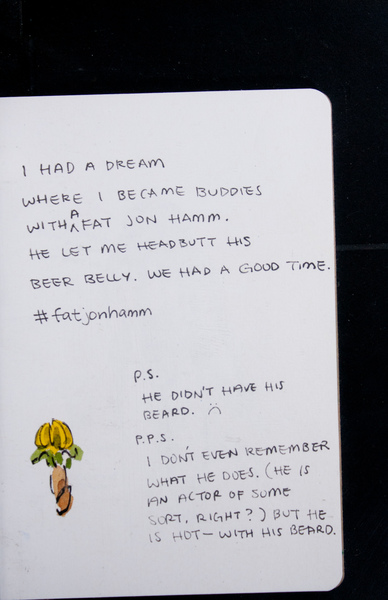 I HAD A DREAM
WHERE I BECAME BUDDIES
WITH A FAT JON HAMM.
HE LET ME HEADBUTT HIS
BEER BELLY. WE HAD A GOOD TIME.
#fatjonhamm
P.S.
HE DIDN'T HAVE HIS
BEARD. :(
P.P.S.
I DON'T EVEN REMEMBER
WHAT HE DOES. (HE IS
AN ACTOR OF SOME
SORT, RIGHT?) BUT HE
IS HOT – WITH HIS BEARD.